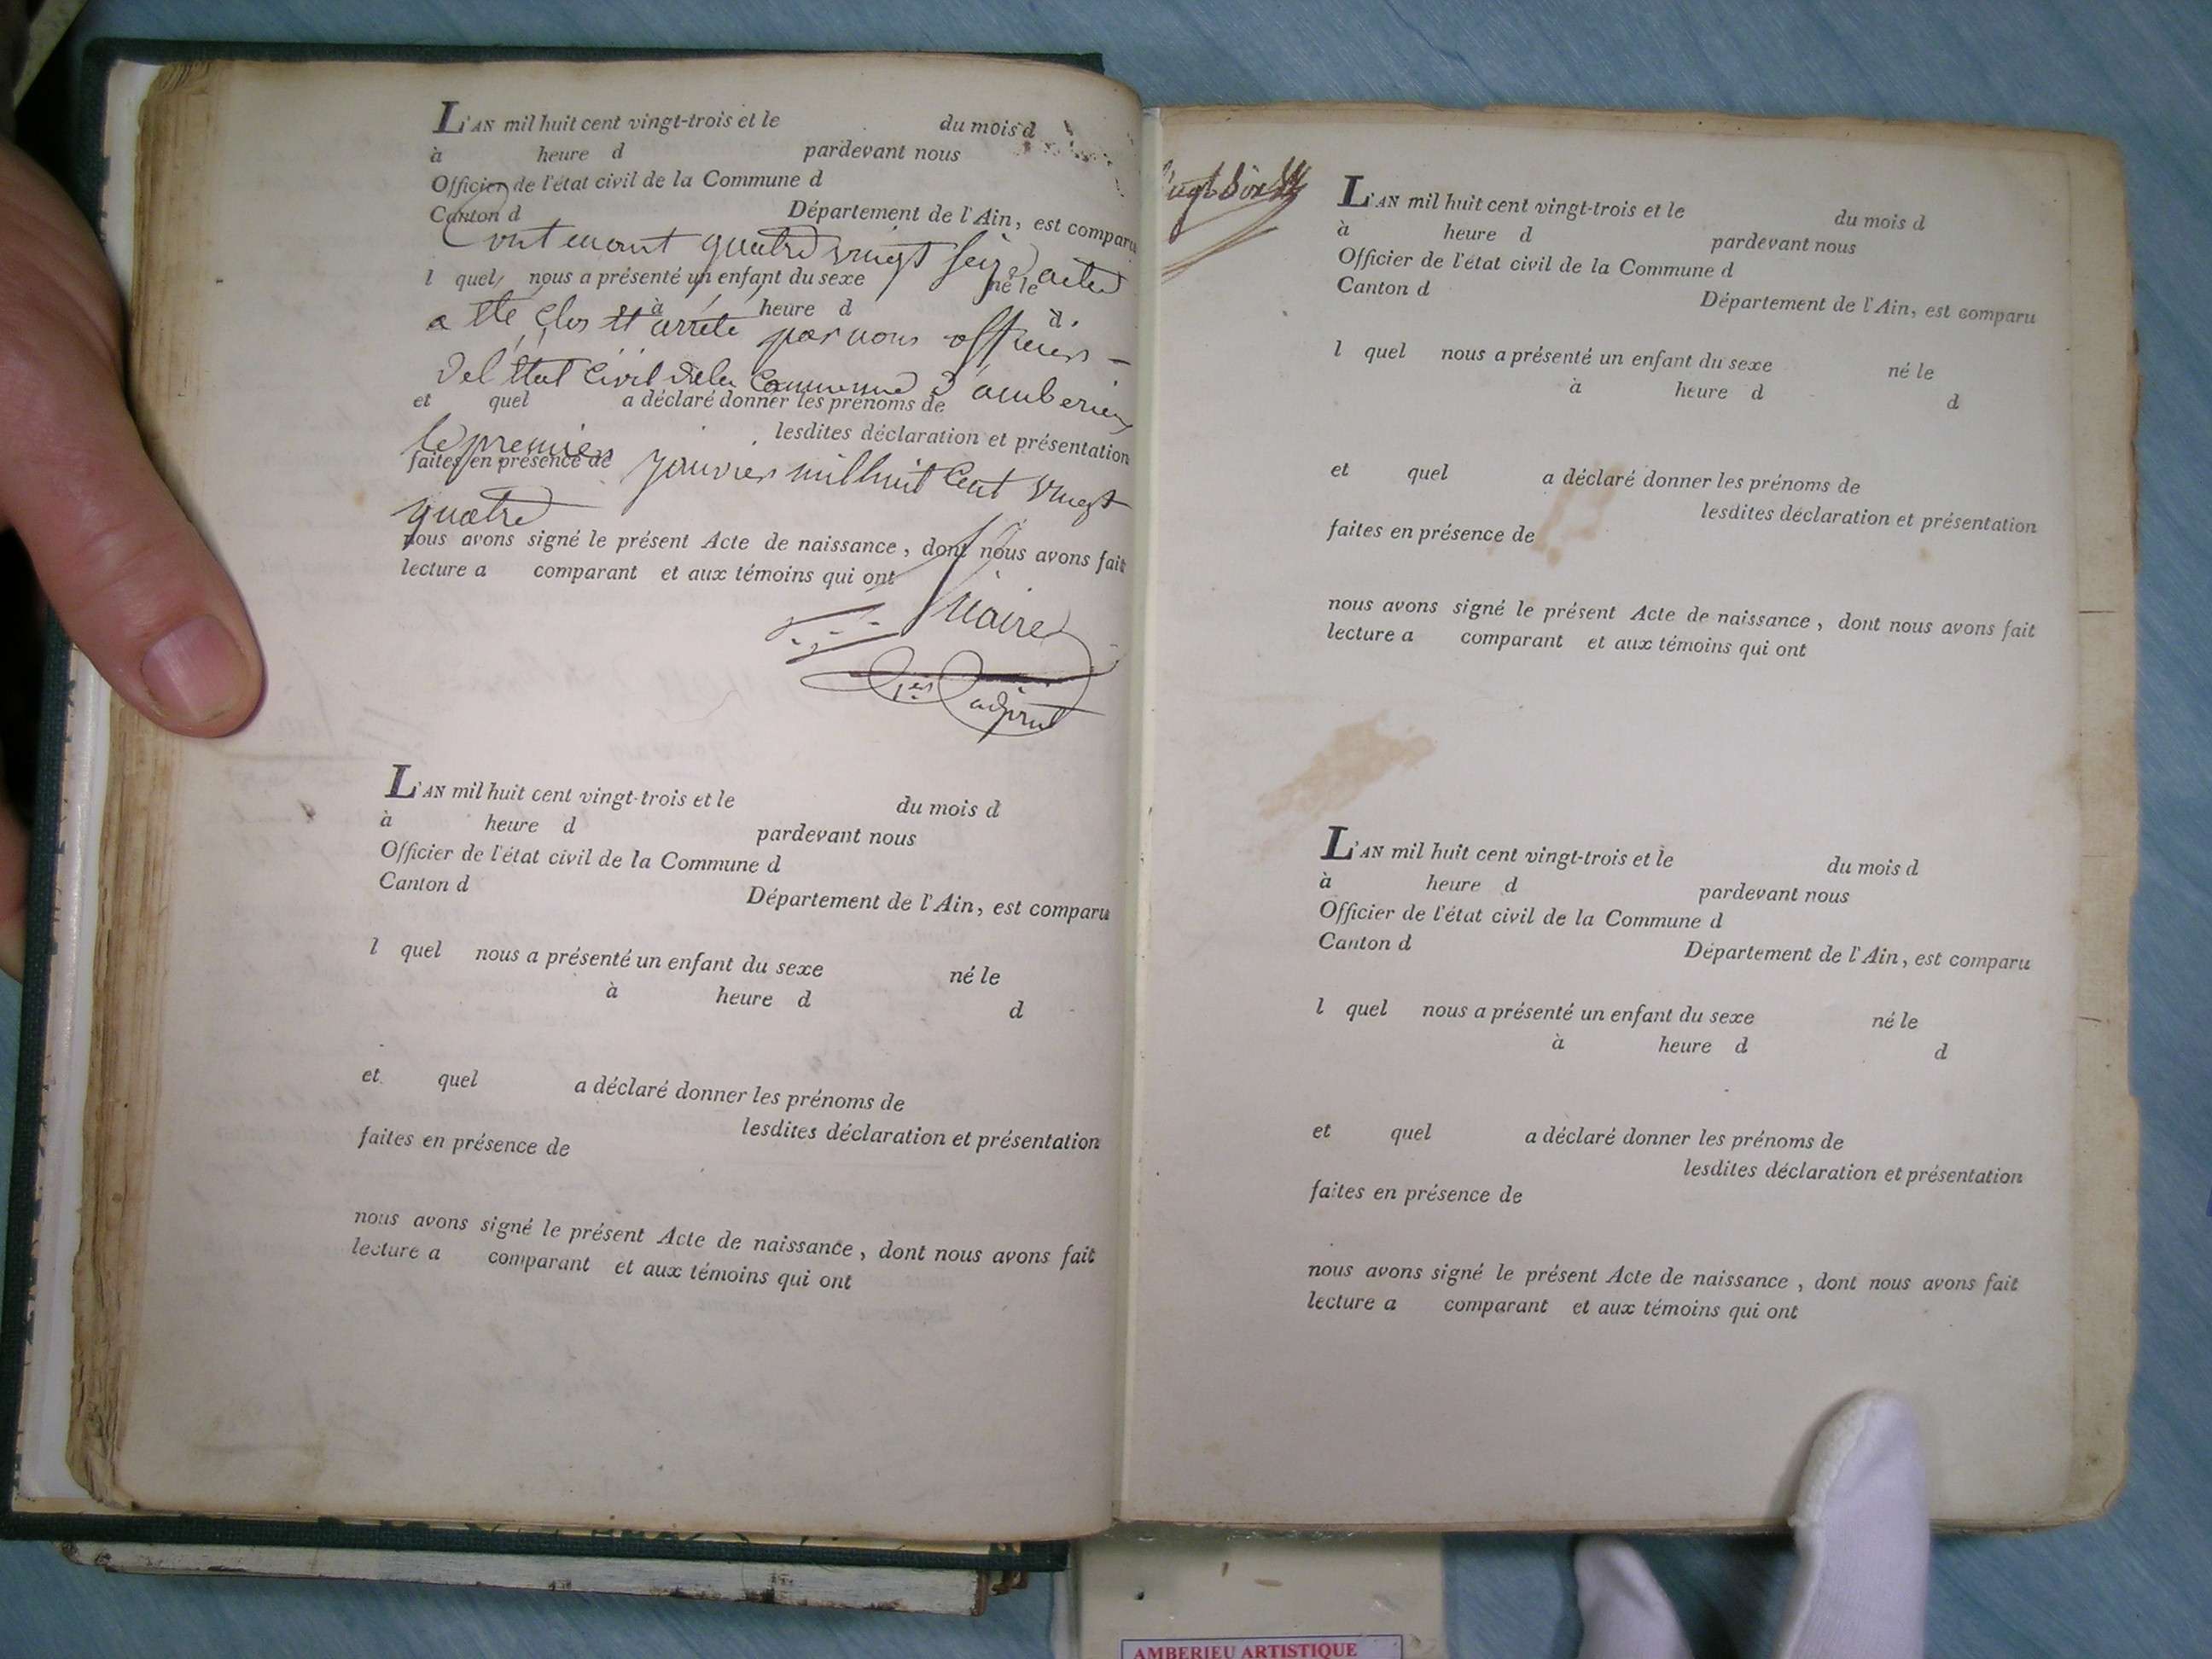 L'AN mil huit cent vingt-trois et le du mois d
à heure d pardevant nous
Officier de l'état civil de la Commune d
Canton d Département de l'Ain, est comparu
Contenant quatre vingt seize actes
l quel nous a présenté un enfant du sexe né le
à heure d d
a été clos et arrêté par nous officier
del'Etat Civil dela Commune d'amberieu
et quel a déclaré donner les prénoms de
lesdites déclaration et présentation
le premier janvier mil huit Cent vingt
faites en présence de
quatre
nous avons signé le présent Acte de naissance, dont nous avons fait
lecture a comparant et aux témoins qui ont
1er adjoint
L'AN mil huit cent vingt-trois et le du mois d
à heure d pardevant nous
Officier de l'état civil de la Commune d
Canton d Département de l'Ain, est comparu
l quel nous a présenté un enfant du sexe né le
à heure d d
et quel a déclaré donner les prénoms de
lesdites déclaration et présentation
faites en présence de
nous avons signé le présent Acte de naissance, dont nous avons fait
lecture a comparant et aux témoins qui ont
L'AN mil huit cent vingt-trois et le du mois d
à heure d pardevant nous
Officier de l'état civil de la Commune d
Canton d Département de l'Ain, est comparu
l quel nous a présenté un enfant du sexe né le
à heure d d
et quel a déclaré donner les prénoms de
lesdites déclaration et présentation
faites en présence de
nous avons signé le présent Acte de naissance, dont nous avons fait
lecture a comparant et aux témoins qui ont
L'AN mil huit cent vingt-trois et le du mois d
à heure d pardevant nous
Officier de l'état civil de la Commune d
Canton d Département de l'Ain, est comparu
l quel nous a présenté un enfant du sexe né le
à heure d d
et quel a déclaré donner les prénoms de
lesdites déclaration et présentation
faites en présence de
nous avons signé le présent Acte de naissance, dont nous avons fait
lecture a comparant et aux témoins qui ont
AMBERIEU ARTISTIQUE